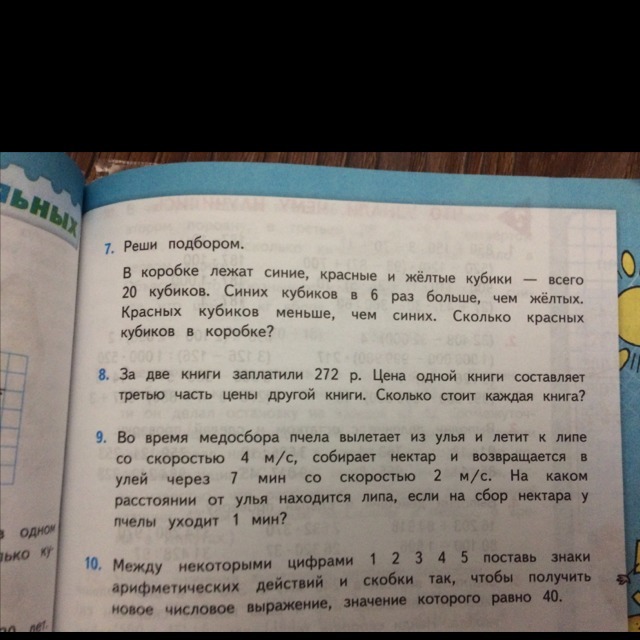 льных
7. Реши подбором.
В коробке лежат синие, красные и жёлтые кубики — всего
20 кубиков. Синих кубиков в 6 раз больше, чем жёлтых.
Красных кубиков меньше, чем синих. Сколько красных
кубиков в коробке?
8. За две книги заплатили 272 р. Цена одной книги составляет
третью часть цены другой книги. Сколько стоит каждая книга?
9. Во время медосбора пчела вылетает из улья и летит к липе
со скоростью 4 м/с, собирает нектар и возвращается в
улей через 7 мин со скоростью 2 м/с. На каком
расстоянии от улья находится липа, если на сбор нектара у
пчелы уходит 1 мин?
10. Между некоторыми цифрами 1 2 3 4 5 поставь знаки
арифметических действий и скобки так, чтобы получить
новое числовое выражение, значение которого равно 40.
в одном
лько ку